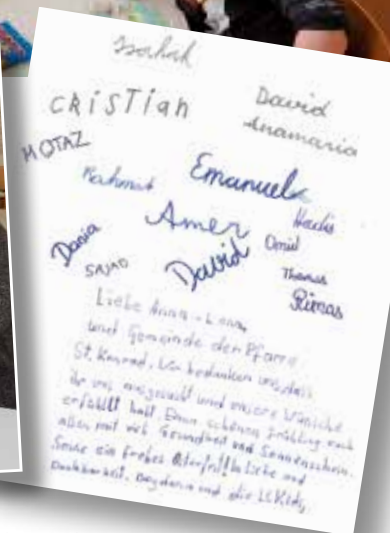 CRISTIAN
David
Anamaria
MOTAZ
Rahmat
Emanuela
Hadis
Amer
Omid
Dania
SAJAD
David
Thomas
Rimas
Liebe Anna-Lena,
und Gemeinde der Pfarre
St. Konrad. Wir bedanken uns, dass
ihr uns eingesucht und unsere Wünsche
erfüllt habt. Einen schönen Frühling euch
allen mit viel Gesundheit und Sonnenschein.
Sowie ein frohes Osterfest! In Liebe und
Dankbarkeit, und die